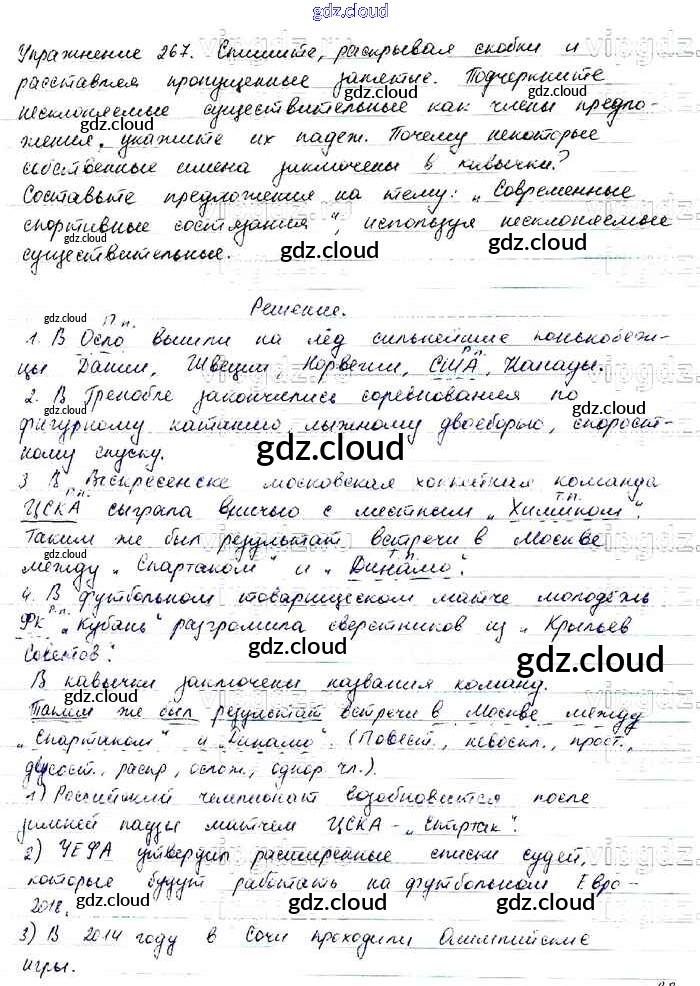 gdz.cloud
Упражнение 267. Спишите, раскрывая скобки и
расставляя пропущенные запятые. Подчеркните
несклоняемые существительные как члены предло-
жения, укажите их падеж. Почему некоторые
собственные имена заключены в кавычки?
Составьте предложения на тему: „Современные
спортивные состязания", используя несклоняемые
существительные.
Решение.
П.п.
1. В Осло вышли на лёд сильнейшие конькобеж-
Р.п.
цы Дании, Швеции, Норвегии, США, Канады.
2. В Гренобле закончились соревнования по
фигурному катанию, лыжному двоеборью, скорост-
ному спуску.
3. В Воскресенске московская хоккейная команда
И.п. Т.п.
ЦСКА сыграла вничью с местным „Химиком".
Таким же был результат встречи в Москве
Т.п.
между „Спартаком" и „Динамо".
4. В футбольном товарищеском матче молодёжь
Р.п.
ФК „Кубань" разгромила сверстников из „Крыльев
Советов".
В кавычки заключены названия команд.
Таким же был результат встречи в Москве между
„Спартаком" и „Динамо". (Повест., невоскл., прост.,
двусост., распр., ослож., однор. чл.).
1) Российский чемпионат возобновится после
зимней паузы матчем ЦСКА – „Спартак".
2) УЕФА утвердил расширенные списки судей,
которые будут работать на футбольном Евро-
2012.
3) В 2014 году в Сочи проходили Олимпийские
игры.